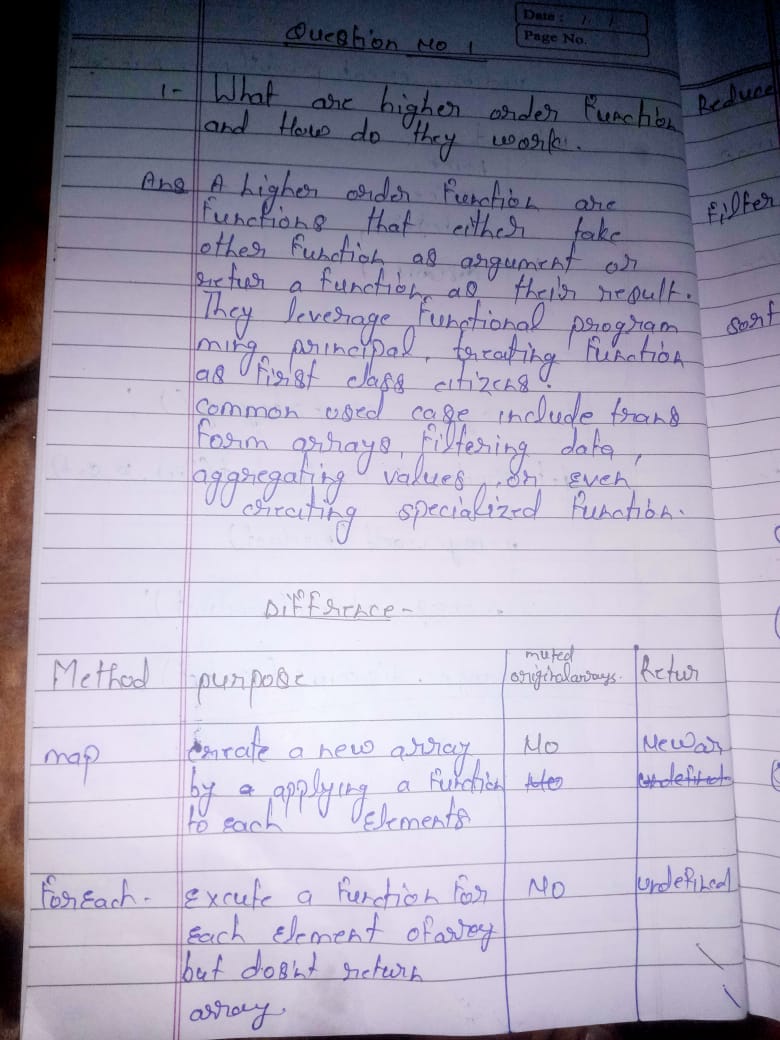 Date : / /
Page No.
Question No 1
1- What are higher order Function
and How do they work.
Ans A higher order Function are
Functions that either take
other Function as argument or
retur a function as their result.
They leverage Functional program
ming principal, treating Function
as First class citizens.
common used case include trans
Form arrays, Filtering data,
aggregating values, or even
creating specialized Function.
Diffrence -
Method purpose muted original arrays. Retur
map create a new array No New ar
by a applying a Function
to each Elements
ForEach - Excute a Function For No undefined
each element of array
but does'nt return
array.
Reduce
Filter
sort